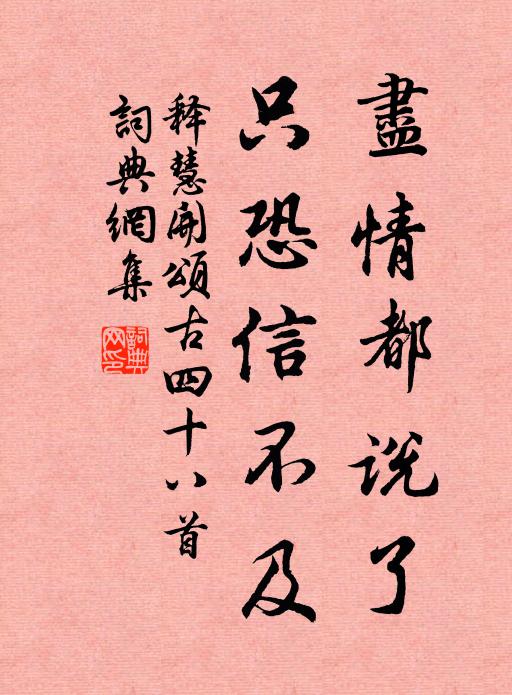 盡情都說了
只恐信不及
释慧開頌古四十八首
詞典網集
詞典
网印